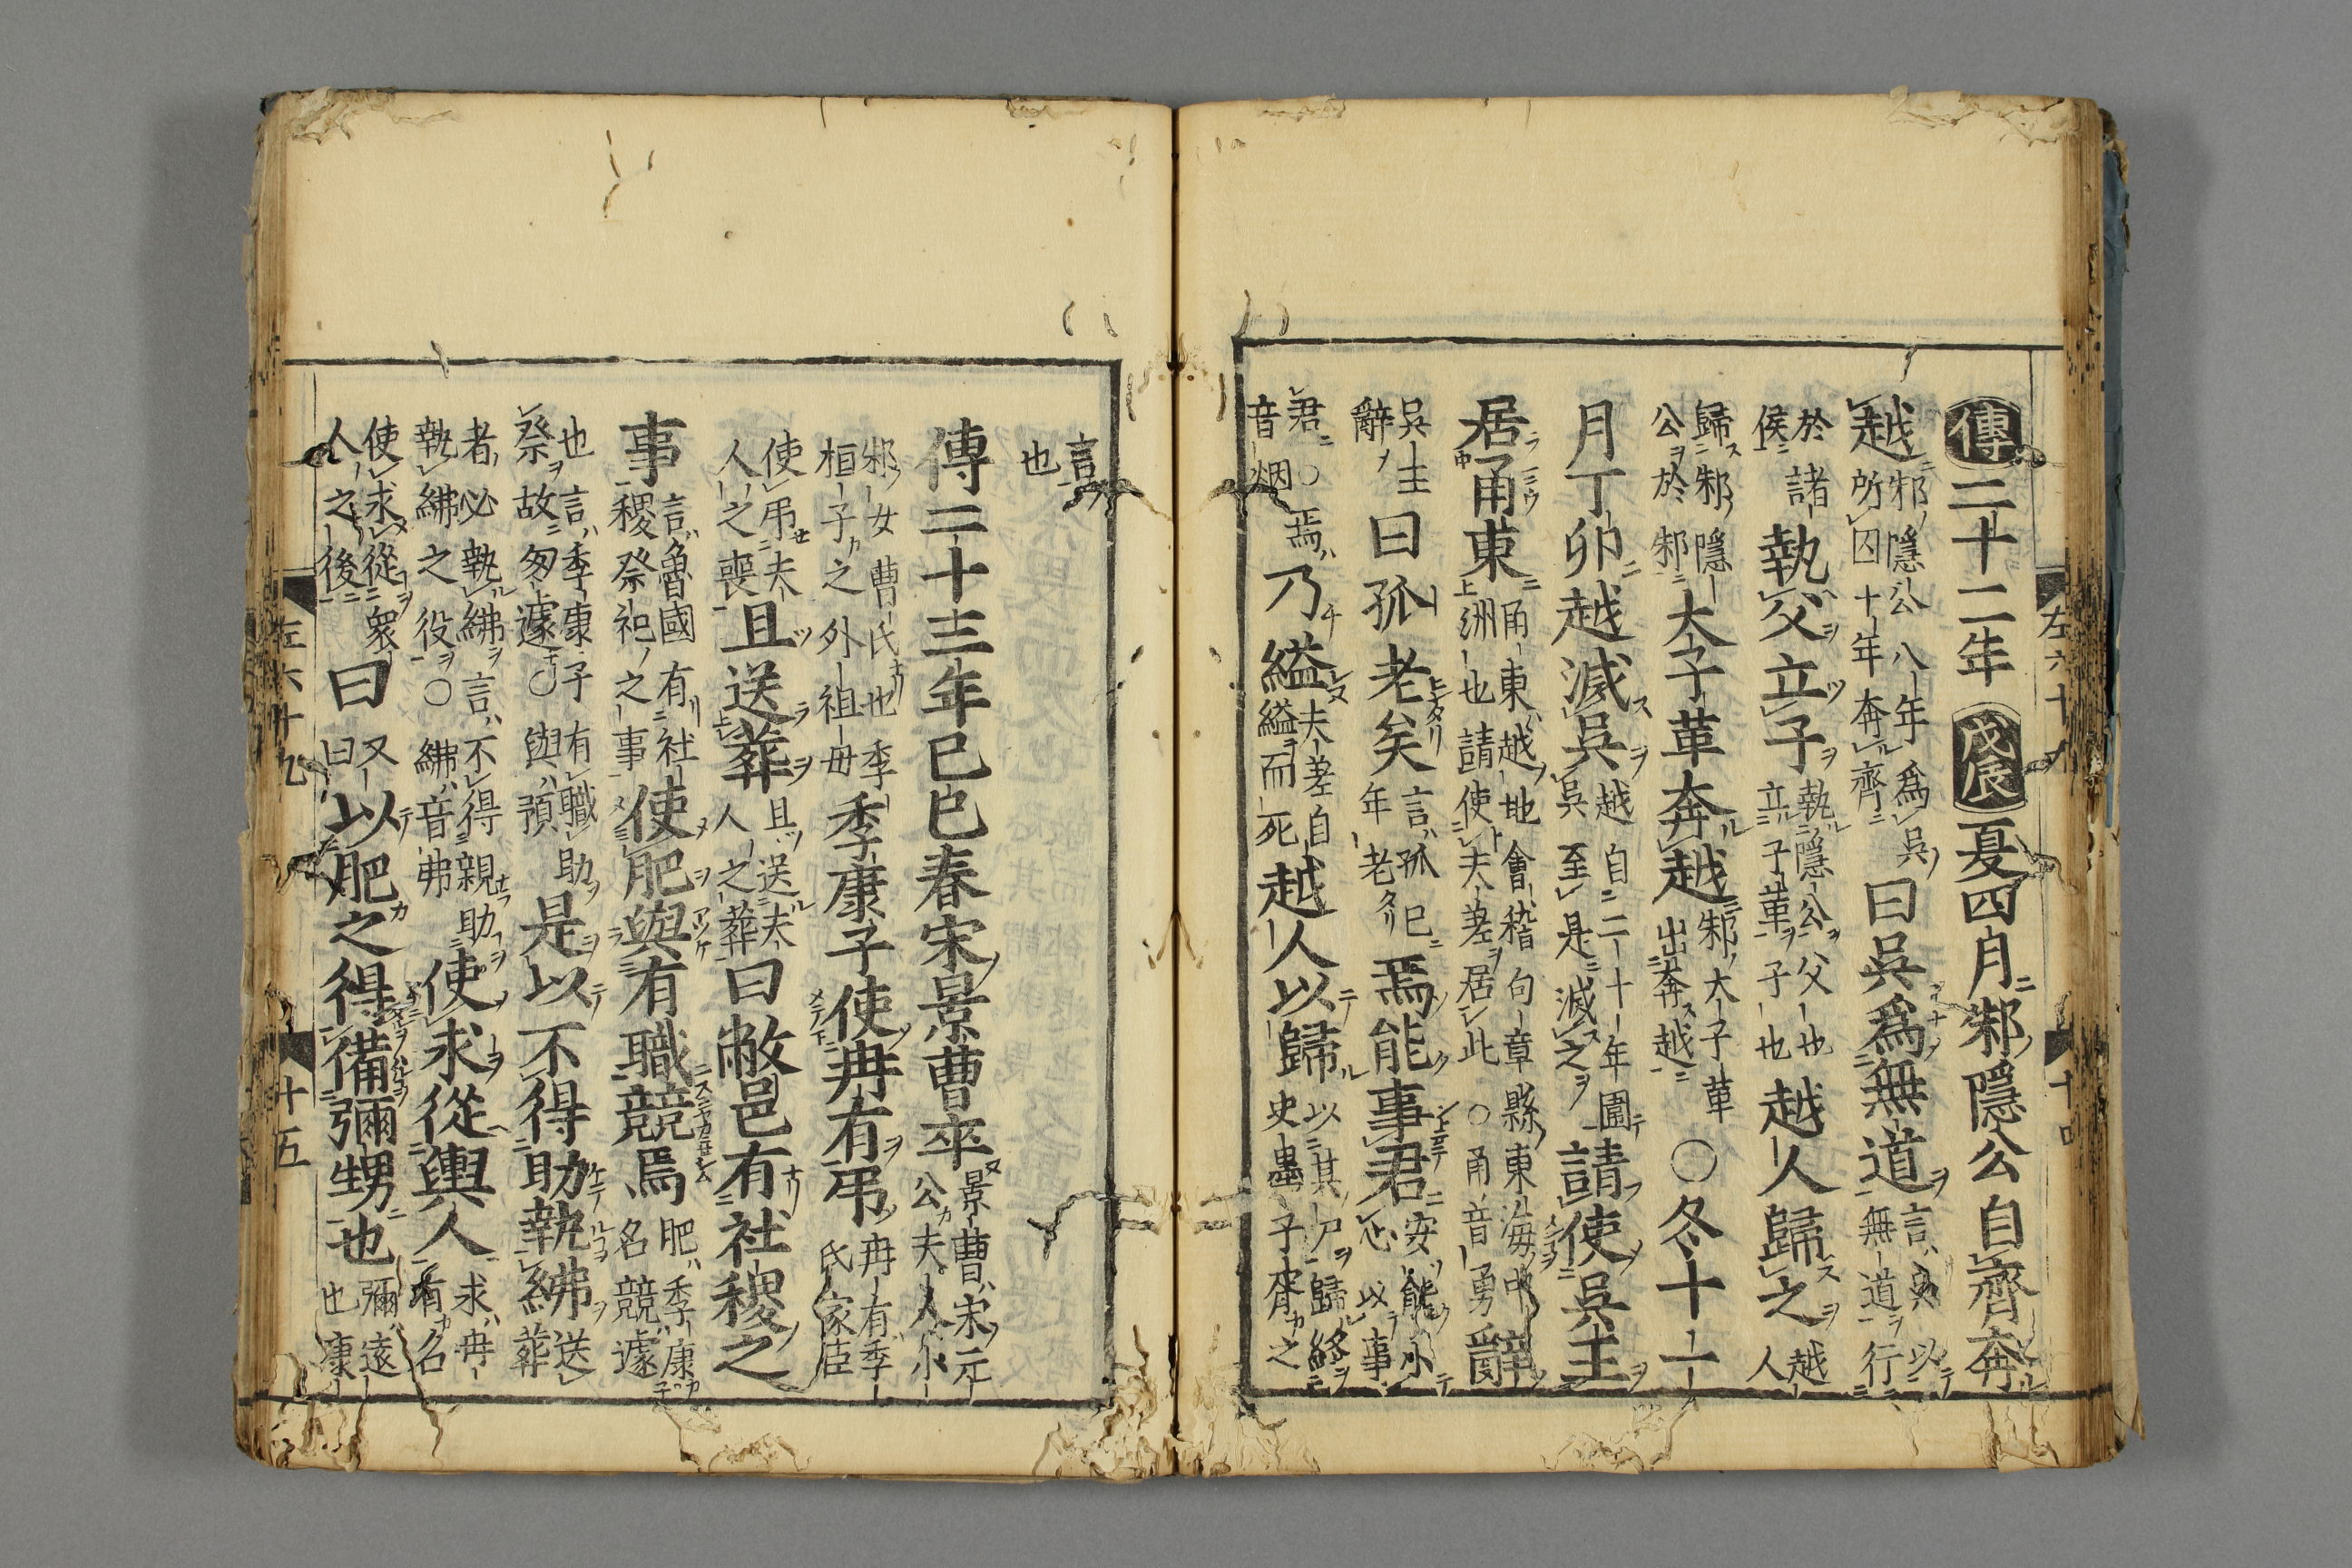 左六十九 十四
傳二十二年戊辰夏四月邾隱公自齊奔
越邾隱公八年爲吳所囚十年奔齊曰吳爲無道言吳以無道行
於諸侯執父立子執隱公父也立子革子也越人歸之越人
歸邾隱公於邾大子革奔越邾大子革出奔越○冬十一
月丁卯越滅吳越自二十年圍吳至是滅之請使吳王
居甬東甬東越地會稽句章縣東海中洲也請使夫差居此○甬音勇辭
吳主辭曰孤老矣言孤已年老焉能事君安能小心以事
君○焉音烟乃縊夫差自縊而死越人以歸以其尸歸終史墨子胥之
言也
傳二十三年己巳春宋景曹卒景曹宋元公夫人小
邾女曹氏也季桓子之外祖母季康子使冉有弔冉有季氏家臣
使弔夫人之喪且送葬且送夫人之葬曰敝邑有社稷之
事言魯國有社稷祭祀之事使肥與有職競焉肥季康子名競遽
也言季康子有職助祭故匆遽○與預是以不得助執紼送葬
者必執紼言不得親助執紼之役○紼音弗使求從輿人求冉有名
使求從衆人之後曰又曰以肥之得備彌甥也彌遠也康
左六十九 十五